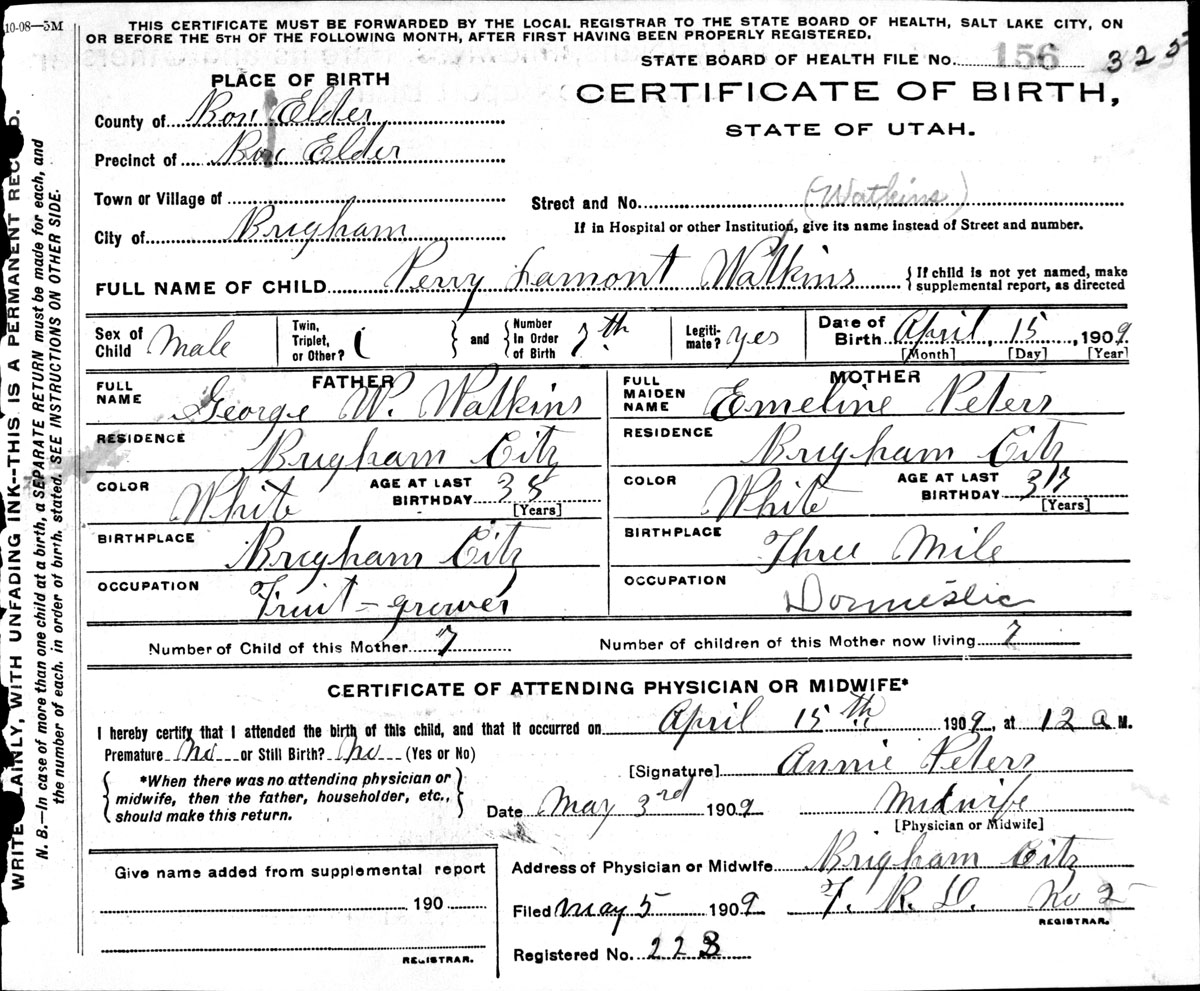 10-08—3M
THIS CERTIFICATE MUST BE FORWARDED BY THE LOCAL REGISTRAR TO THE STATE BOARD OF HEALTH, SALT LAKE CITY, ON
OR BEFORE THE 5TH OF THE FOLLOWING MONTH, AFTER FIRST HAVING BEEN PROPERLY REGISTERED.
STATE BOARD OF HEALTH FILE No. 156 325
PLACE OF BIRTH
CERTIFICATE OF BIRTH,
STATE OF UTAH.
County of Box Elder
Precinct of Box Elder
Town or Village of
Street and No. (Watkins)
City of Brigham
If in Hospital or other Institution, give its name instead of Street and number.
FULL NAME OF CHILD Perry Lamont Watkins { If child is not yet named, make
supplemental report, as directed
Sex of Child Male
Twin, Triplet, or Other? 1 } and { Number in Order of Birth 7th
Legiti-mate? yes
Date of Birth April, 15, 1909
[Month] [Day] [Year]
FATHER
FULL NAME George W. Watkins
RESIDENCE Brigham City
COLOR White AGE AT LAST BIRTHDAY 38
[Years]
BIRTHPLACE Brigham City
OCCUPATION Fruit-grower
MOTHER
FULL MAIDEN NAME Emeline Peters
RESIDENCE Brigham City
COLOR White AGE AT LAST BIRTHDAY
[Years]
BIRTHPLACE Three Mile
OCCUPATION Domestic
Number of Child of this Mother 7 Number of children of this Mother now living 7
CERTIFICATE OF ATTENDING PHYSICIAN OR MIDWIFE*
I hereby certify that I attended the birth of this child, and that it occurred on April 15th 1909, at 12 a M.
Premature No or Still Birth? No (Yes or No)
{ *When there was no attending physician or
midwife, then the father, householder, etc.,
should make this return. }
[Signature] Annie Peters
Date May 3rd 1909 Midwife
[Physician or Midwife]
Address of Physician or Midwife Brigham City
Filed May 5 1909 F. R. D. No 2
REGISTRAR.
Registered No. 223
Give name added from supplemental report
190
REGISTRAR.
WRITE PLAINLY, WITH UNFADING INK--THIS IS A PERMANENT RECORD.
N. B.—In case of more than one child at a birth, a SEPARATE RETURN must be made for each, and
the number of each, in order of birth, stated. SEE INSTRUCTIONS ON OTHER SIDE.